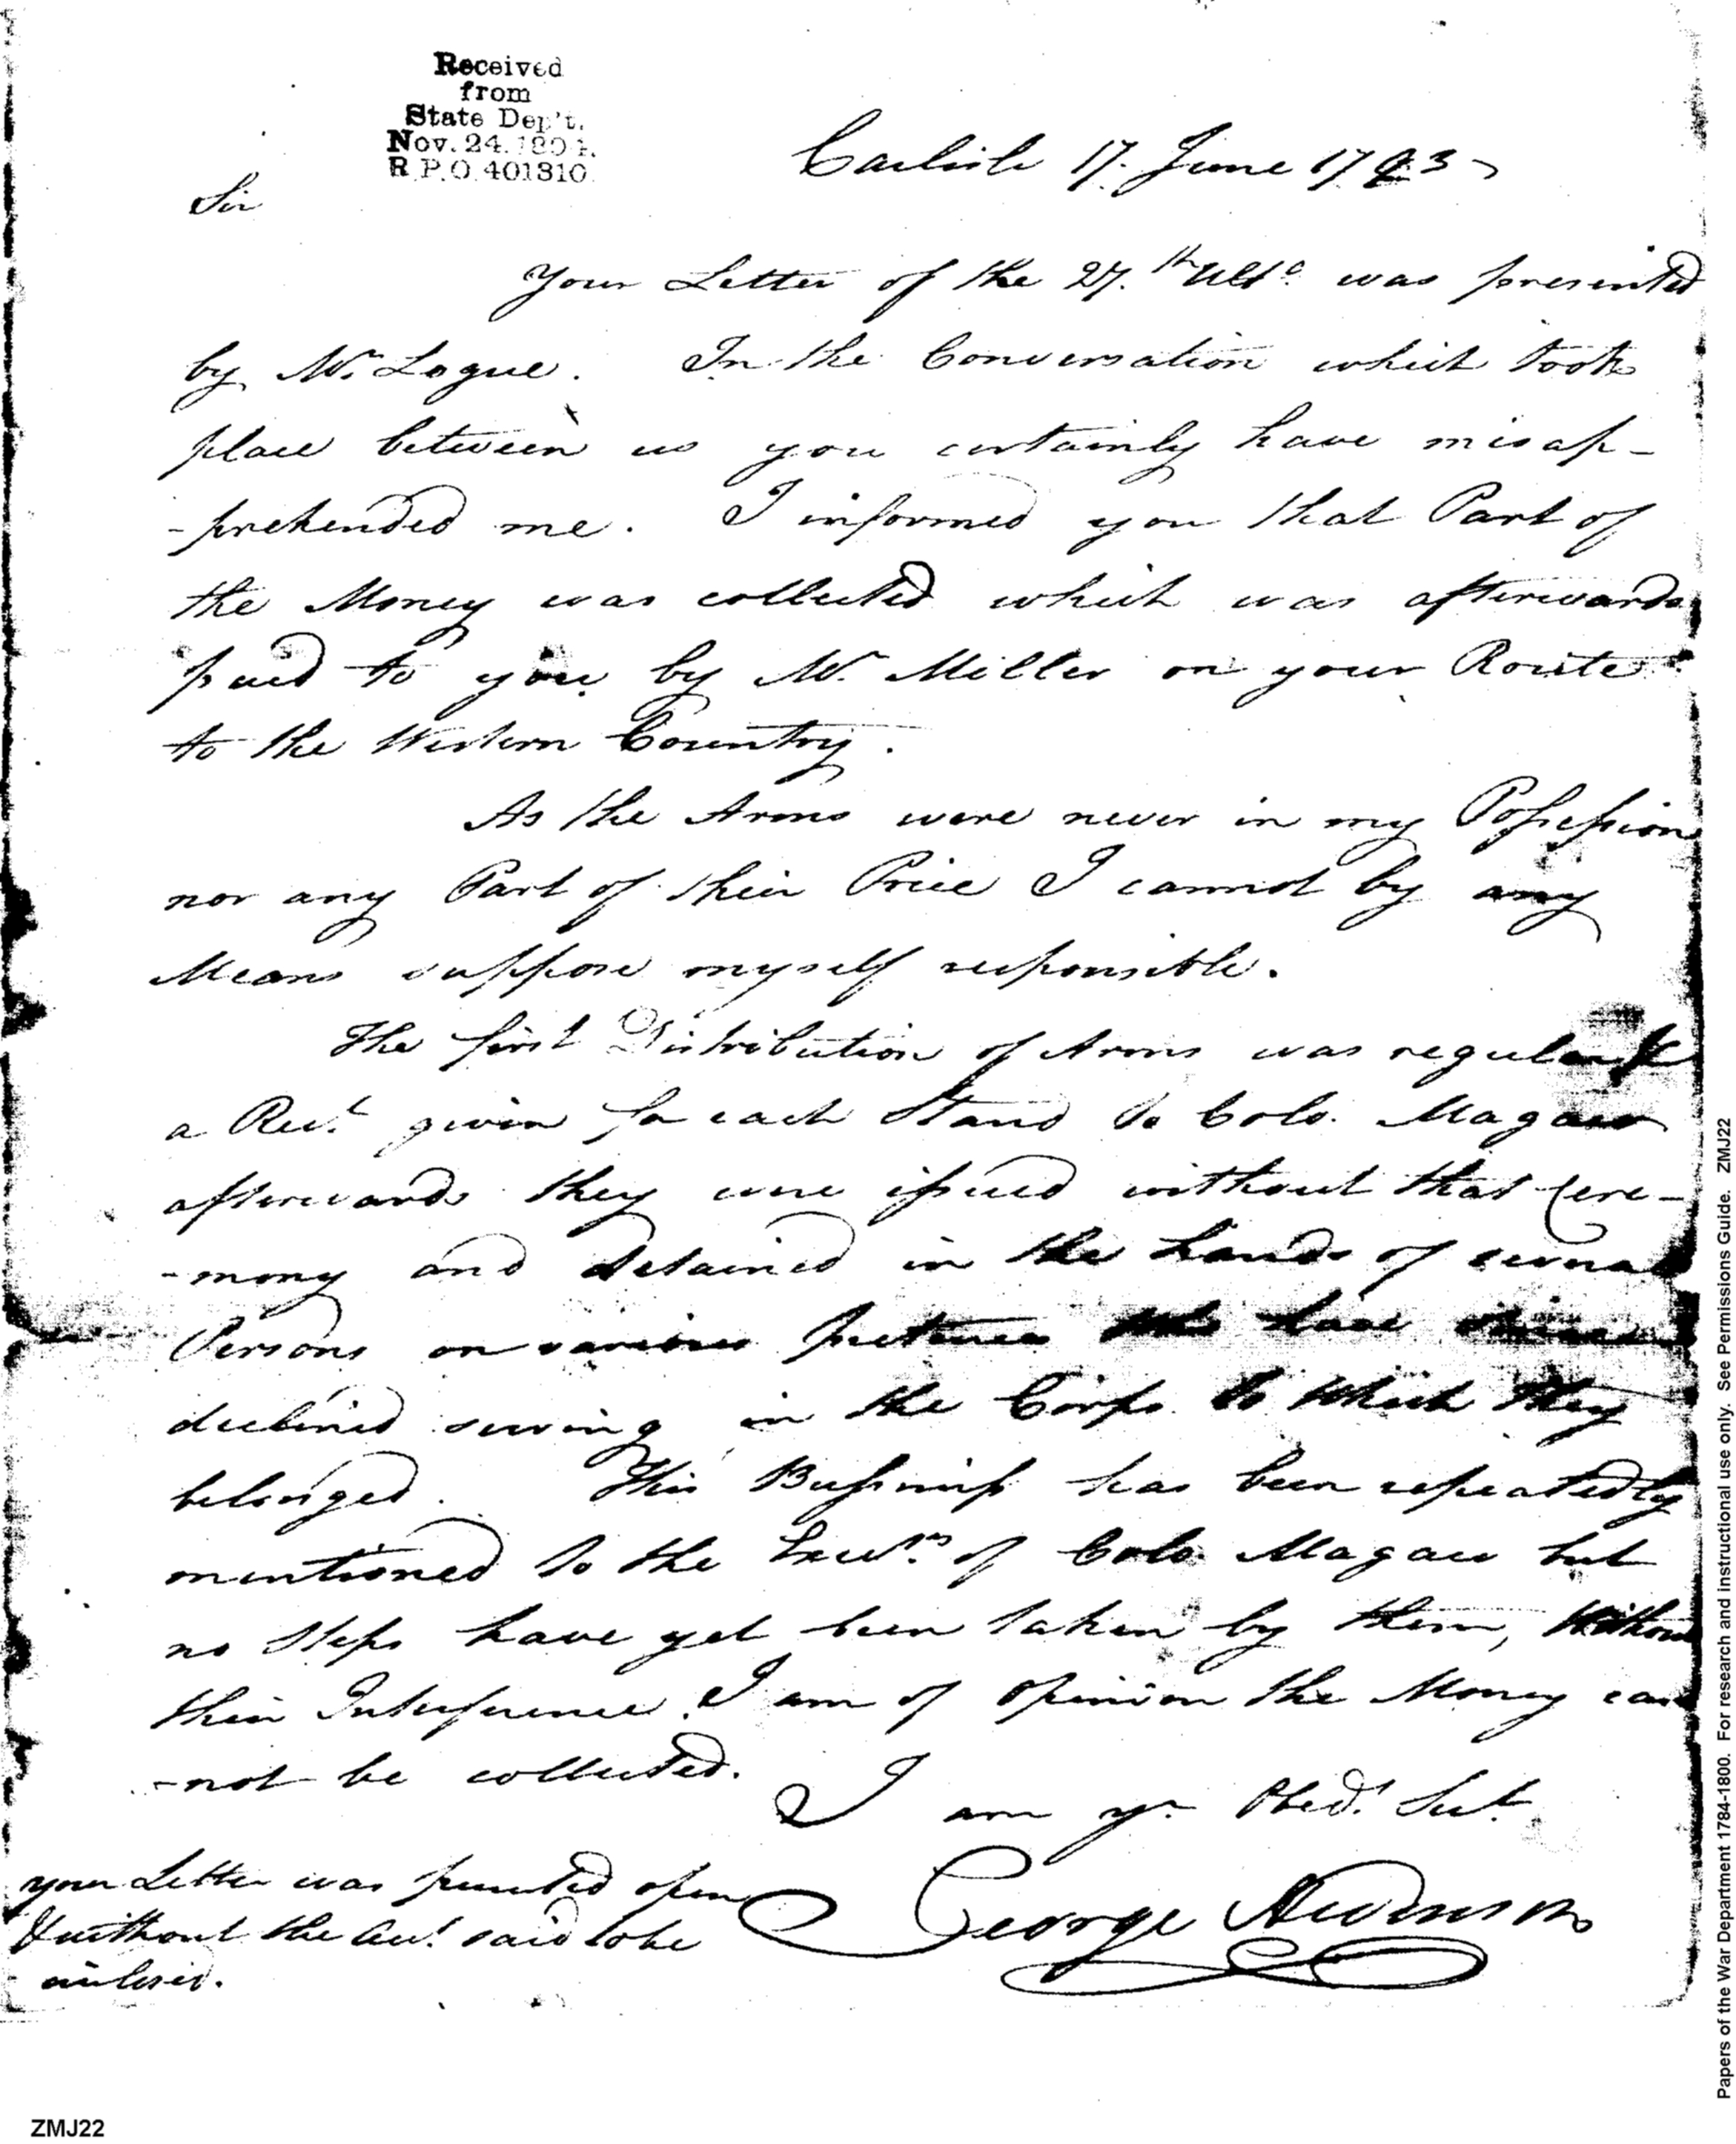 Received
from
State Dep't.
Nov. 24. 1894.
R.P.O. 401310.
Carlisle 17. June 1793
Sir
Your Letter of the 27.th Ulto. was presented
by Mr. Logue. In the Conversation which took
place between us you certainly have misap-
-prehended me. I informed you that Part of
the Money was collected which was afterwards
paid to you by Mr. Miller on your Route
to the Western Country.
As the Arms were never in my Possession
nor any Part of their Price I cannot by any
Means suppose myself responsible.
The first Distribution of Arms was regular &
a Rect. given for each Stand to Colo. Magaw
afterwards they were issued without that Cere-
-mony and detained in the hands of several
Persons on various pretences who have since
declined serving in the Corps to which they
belonged. This Bussiness has been repeatedly
mentioned to the Execrs. of Colo. Magaw but
no Steps have yet been taken by them, Without
their Interference I am of opinion the Money can
-not be collected.
I am yr Obedt. Sert.
George
your Letter was presented open
& without the Act. said to be
inclosed.
ZMJ22
Papers of the War Department 1784-1800. For research and instructional use only. See Permissions Guide. ZMJ22